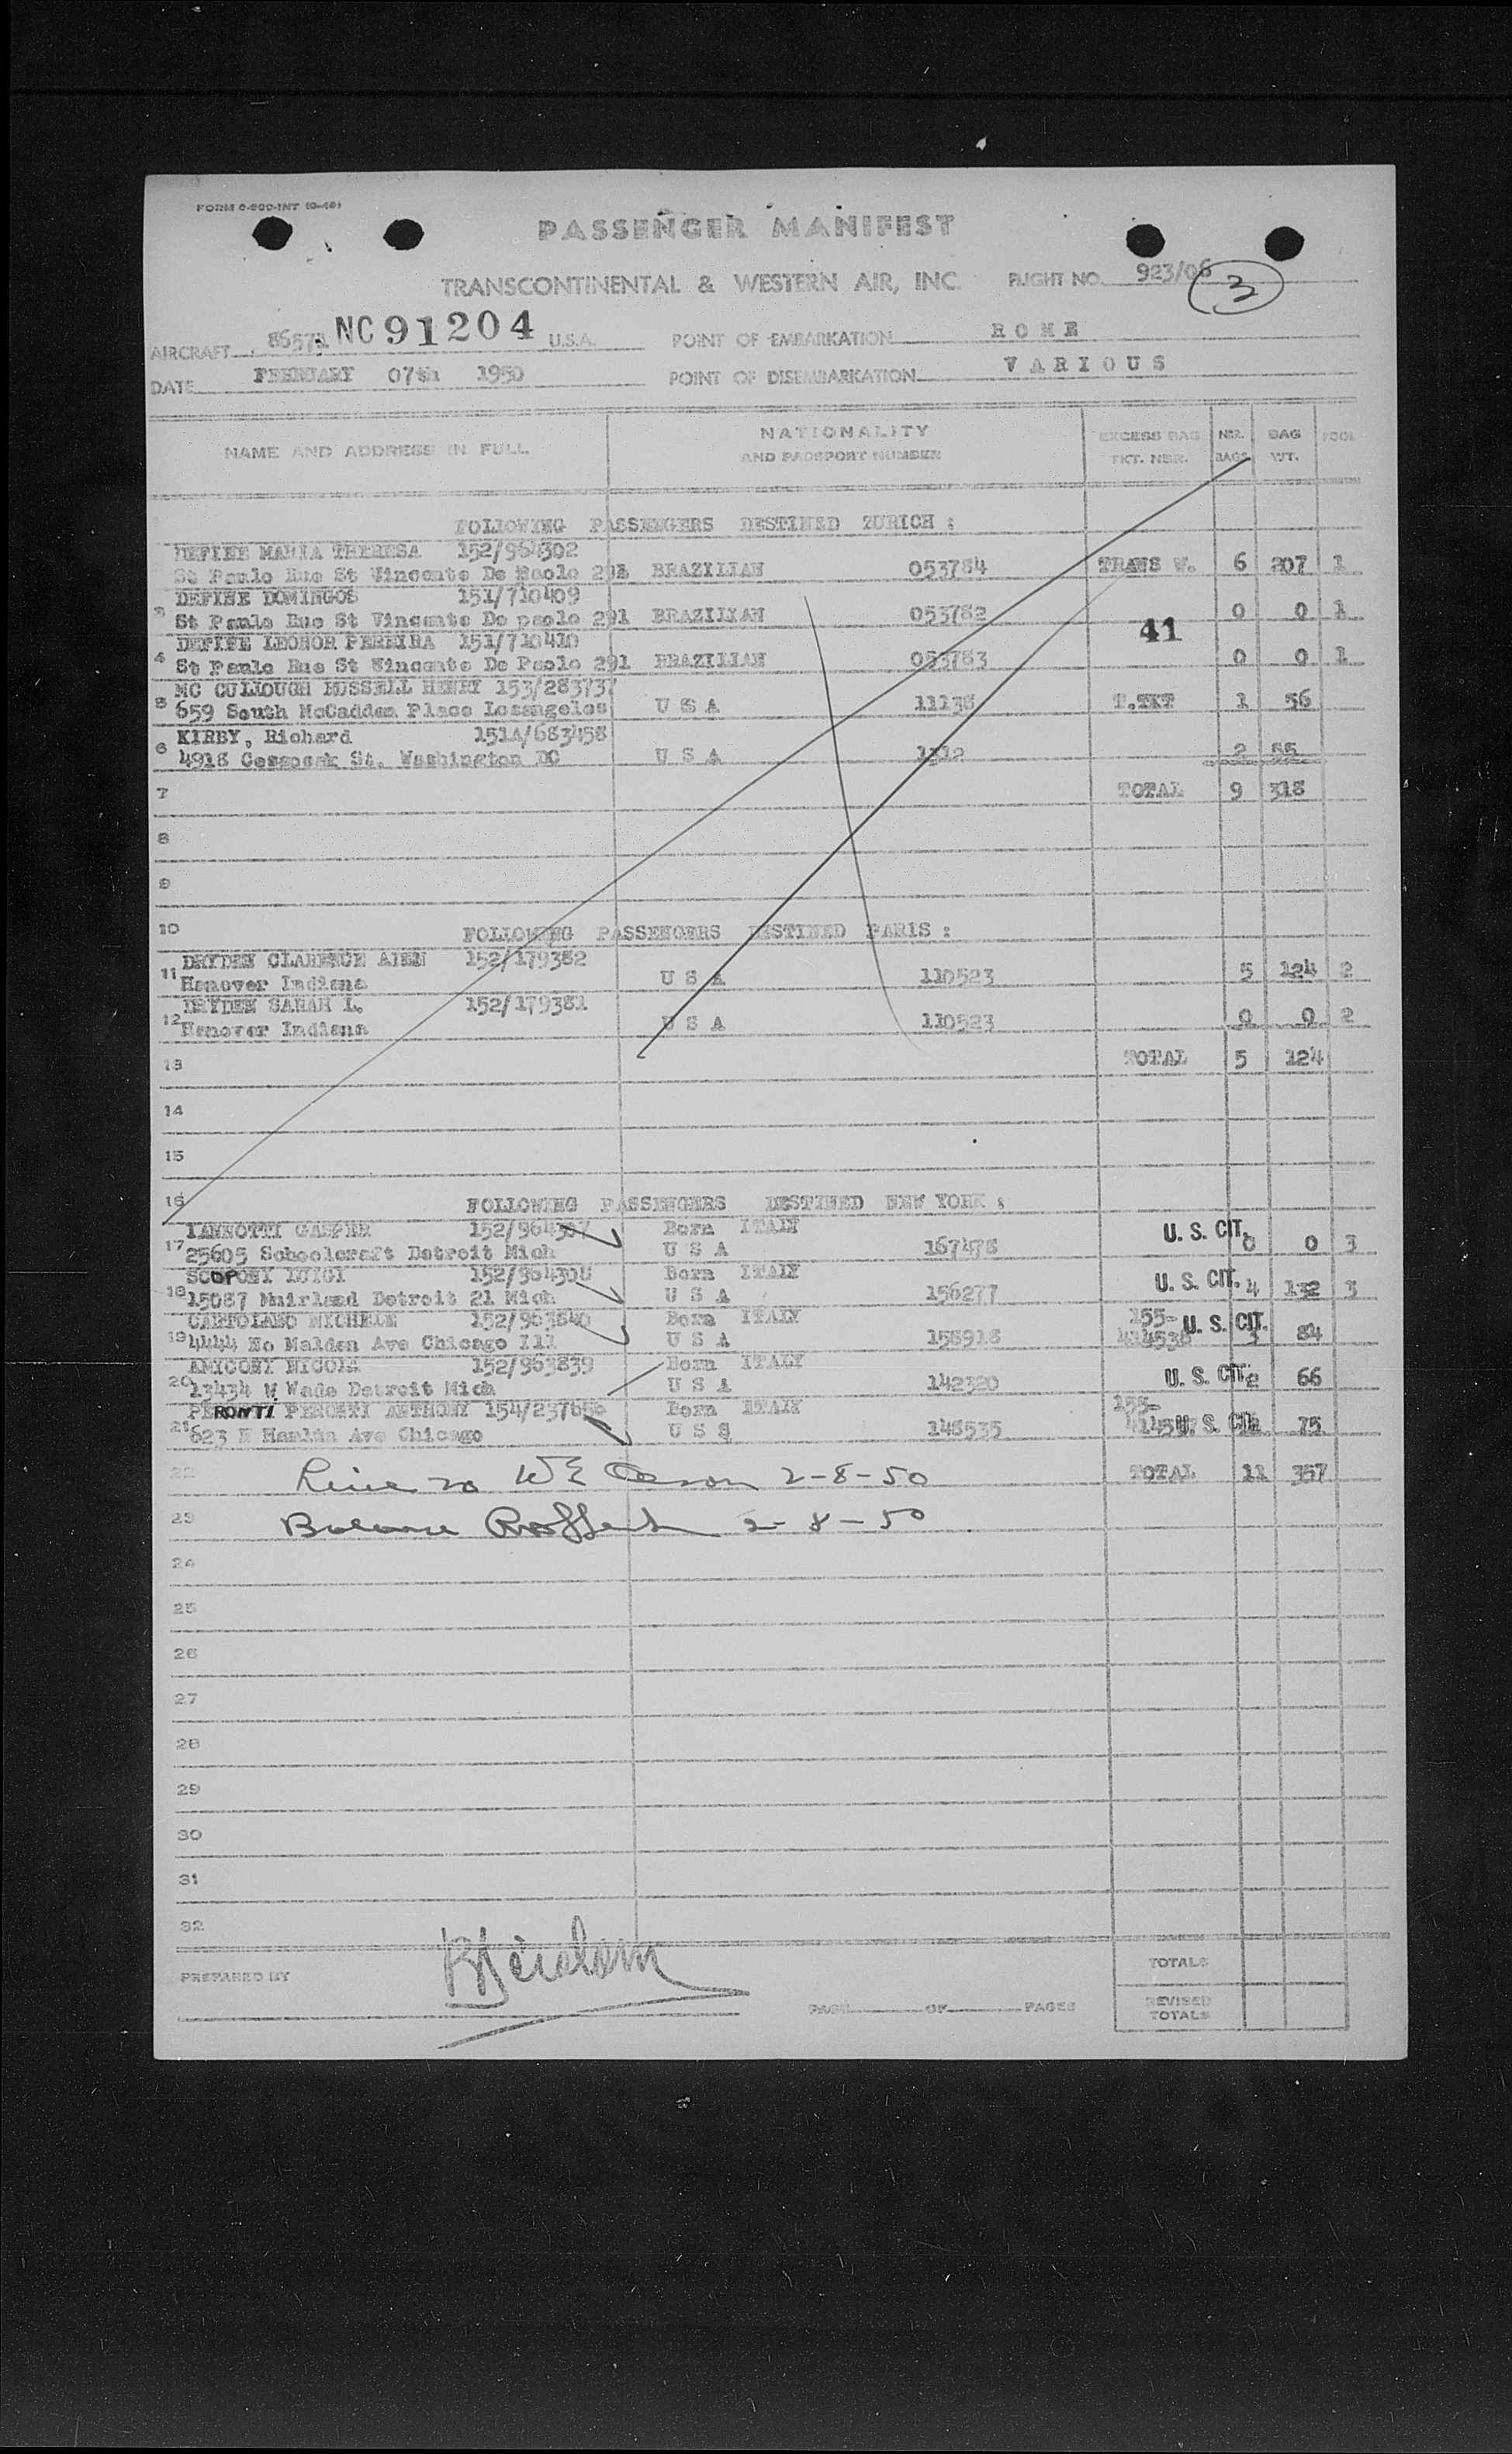 FORM 0-800-INT
PASSENGER MANIFEST
TRANSCONTINENTAL & WESTERN AIR, INC. FLIGHT NO. 923/06
3
AIRCRAFT NC91204 U.S.A. POINT OF EMBARKATION ROME
DATE FEBRUARY 07th 1950 POINT OF DISEMBARKATION VARIOUS
NAME AND ADDRESS IN FULL NATIONALITY AND PASSPORT NUMBER EXCESS BAG TKT. NBR. NBR. BAGS BAG WT. POOL
FOLLOWING PASSENGERS DESTINED ZURICH :
DEFINE MARIA THERESA 152/964302
St Paulo Rue St Vincente De Paolo 291 BRAZILIAN 053784 TRANS W. 6 207 1
DEFINE DOMINGOS 151/710409
3 St Paulo Rue St Vincente De paolo 291 BRAZILIAN 053782 0 0 1
41
DEFINE LEONOR PEREIRA 151/710410
4 St Paulo Rue St Vincente De Paolo 291 BRAZILIAN 053783 0 0 1
MC CULLOUGH RUSSELL HENRY 153/283737
5 659 South McCadden Place Losangelos U S A 11138 T.TKT 1 56
KIRBY, Richard 151A/683458
6 4918 St. Washington DC U S A 1312 2 55
7 TOTAL 9 318
8
9
10 FOLLOWING PASSENGERS DESTINED PARIS :
DRYDEN CLARENCE 152/179382
11 Hanover Indiana U S A 110523 5 124 2
DRYDEN SARAH L. 152/179381
12 Hanover Indiana U S A 110523 0 0 2
13 TOTAL 5 124
14
15
16 FOLLOWING PASSENGERS DESTINED NEW YORK :
IANNOTTI GASPER 152/964307 Born ITALY
17 25605 Schoolcraft Detroit Mich U S A 167478 U. S. CIT. 0 0 3
SCOPONY LUIGI 152/964308 Born ITALY
18 15087 Muirland Detroit 21 Mich U S A 156277 U. S. CIT. 4 132 3
CARTOLANO MICHELE 152/963840 Born ITALY 155-
19 4444 No Malden Ave Chicago Ill U S A 158918 414538 U. S. CIT. 84
AMICONY NICOLA 152/963839 Born ITALY
20 13434 W Wade Detroit Mich U S A 142320 U. S. CIT. 2 66
PERONTI ANTHONY 154/237656 Born ITALY 155-
21 623 N Hamlin Ave Chicago U S S 148535 U. S. CIT. 75
22 Line 20 2-8-50 TOTAL 11 357
23 Balance 2-8-50
24
25
26
27
28
29
30
31
32
PREPARED BY
PAGE OF PAGES
TOTALS
REVISED TOTALS